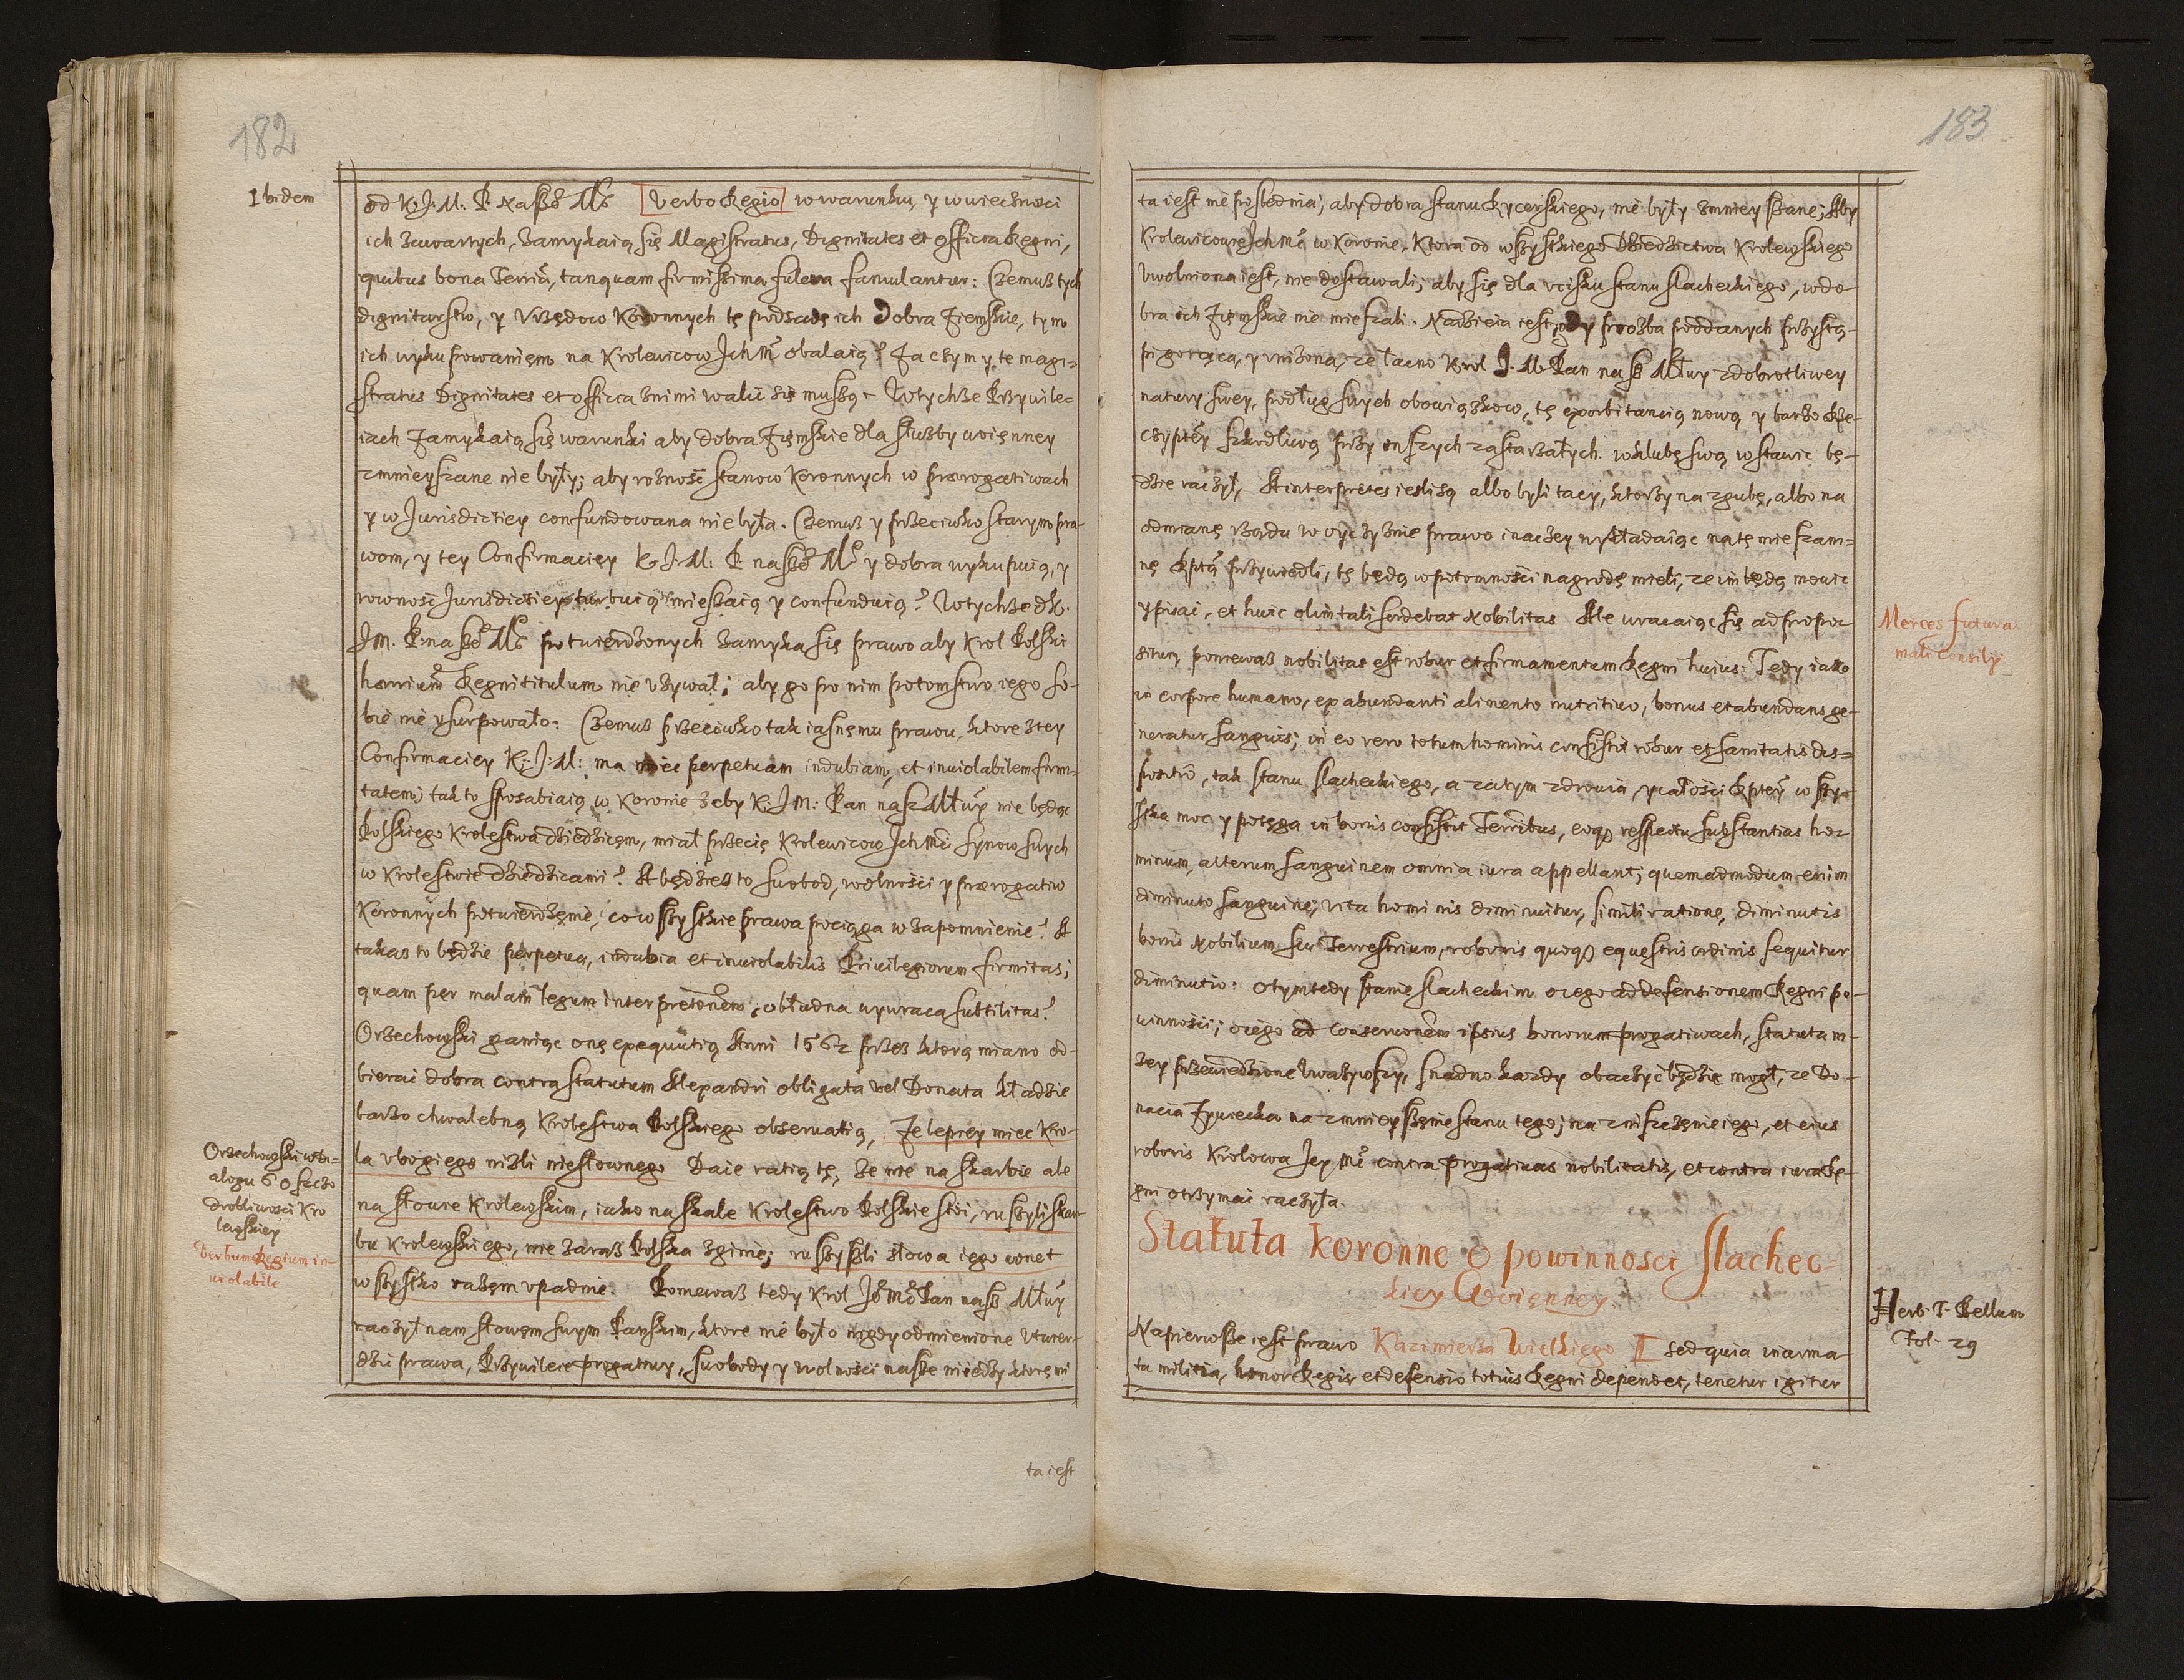 182
Ibidem
od K: J: M: P. Naszo Mło Verbo Regio w warunku, y w wiecznosci
ich zawartych, zamykaią się Magistratus, Dignitates et officia Regni,
quibus bona Terria, tanquam firmissima fulcra famulantur: Czemusz tych
dignitarstw, y Vrzędow Koronnych tę podsadę ich Dobra Ziemskie, tym
ich wykupowanięm na Krolewicow Ich Mć obalaią? Za czym y te magi-
stratus Dignitates et officia znimi walić się muszą. Wtychże Przywile-
iach Zamykaią się warunki aby dobra Zięmskie dla służby woięnney
zmnieyszane nie były; aby rożność stanow Koronnych w prærogatiwach
y w Jurisdictiey confundowana nie była. Czemusz y przeciwko starym pra-
wom, y tey Confirmaciey K: J: M: P. naszo Mło y dobra wykupuią, y
rowność Jurisdictiey turbuią mieszaią y confunduią? Wtychże od K.
J M. P. naszo Mło potwierdzonych zamyka się prawo aby Krol Polski
hærium Regni titulum nie vżywał; aby go po nim potomstwo iego so-
bie nie vsurpowało: Czemusz przeciwko tak iasnęmu prawu, ktore z tey
Confirmaciey K: J: M: ma mieć perpetuam indubiam, et inuiolabilem firmi-
tatem; tak to sposabiaią w Koronie żeby K: J M: Pan nasz Młwy nie będąc
Polskiego Krolestwa dziedzicęm, miał przecię Krolewicow Ich Mći synow swych
w Krolestwie dziedzicami? A będziesz to swobod, wolności y prærogatiw
Koronnych potwierdzęnie, co wszystkie prawa pociąga w zapomnienie? A
takasz to będzie perpetua, indubia et inuiolabilis Priuilegiorum firmitas;
quam per malam legum interpretonem, obłudna wywraca subtilitas?
Orzechowski ganiąc onę exequutią Anni 1562 przez ktorą miano od-
bierać dobra contra statutum Alexandri obligata vel Donata kładzie
barzo chwalebną Krolestwa Polskiego obseruatią, Że lepiey mieć Kro-
la vbogiego niżli niesłownego Daie ratią tę, że nie na skarbie ale
na słowie Krolewskim, iako na skale Krolestwo Polskie stoi, ruszyli skar-
bu Krolewskiego, nie zaraz Polska zginie; ruszyszli słowa iego wnet
wszystko razęm vpadnie. Poniewasz tedy Krol Jo Mo Pan nasz Młwy
raczył nam słowęm swym Pańskim, ktore nie było nigdy odmienione vtwier-
dzić prawa, Przywileie progatiwy, swobody y wolności nasze miedzy ktoręmi
Orzechowski w Di-
alogu 6 o szczo
drobliwości Kro
lewskiey
Verbum Regium in-
uiolabile
ta iest
183
ta iest nie poślednia; aby dobra stanu Rycerskiego, nie były zmnieyszane; Aby
Krolewicowie Ich Mć w Koronie, Ktora od wszystkiego Dziedzictwa Krolewskiego
vwolniona iest, nie dostawali; aby się dla vcisku stanu slacheckiego, w do-
bra ich Zięmskie nie mieszali. Nadzieia iest, gdy proźba poddanych przystą-
pi gorąca, y vniżona, że łacno Krol J. M. Pan nasz Młwy z dobrotliwey
natury swey, podług swych obowiązkow, tę exorbitancią nową y barzo Rze-
czyptey szkodliwą przy inszych zastarzałych. w klubę swą wstawić bę-
dzie raczył, A interpretes iesli są albo byli tacy, ktorzy na zgubę, albo na
odmianę rządu w oyczyznie prawo inaczey wykładaiąc na tę mieszani-
nę Rptą przywiedli; tę będą w potomności nagrodę mieli, że im będą mowić
y pisać, et huic olim tali sordebat Nobilitas Ale wracaiąc się ad propo-
situm, poniewasz nobilitas est robur et firmamentum Regni huius: Tedy iako
in corpore humano, ex abundanti alimento nutritiuo, bonus et abundans ge-
neratur sanguis; in eo vero totum hominis consistit robur et sanitatis dis-
positio, tak stanu slacheckiego, a zatym zdrowia, y całości Rptey wszy-
stka moc y potęga in bonis consistit Terribus, eoq respectu substantias ho-
minum, alterum sanguinem omnia iura appellant; quemadmodum enim
diminuto sanguine, vita hominis diminuitur, simili ratione, diminutis
bonis Nobilium seu Terrestrium, roboris quoq equestris ordinis sequitur
diminutio: o tym tedy stanie slacheckim o iego ad defensionem Regni po-
winności; o iego ad conseruonem ipsius bonorum progatiwach, statuta ni-
żey przewiedzione vważywszy, snadno każdy obaczyć będzie mogł, że Do-
nacia Żywiecka na zmnieyszęnie stanu tego; na zniszczęnie iego, et eius
roboris Krolowa Jey Mć contra progatiuas nobilitatis, et contra iura Re-
gni otrzymać raczyła.
Statuta koronne o powinnosci slachec-
kiey Woięnney.
Napierwsze iest prawo Kazimierza Wielkiego II sed quia in arma-
ta militia, honor Regis, et defensio totius Regni dependet, tenetur igitur
Merces futura
mali Consilij
Herb. T. Bellum
Fol. 29